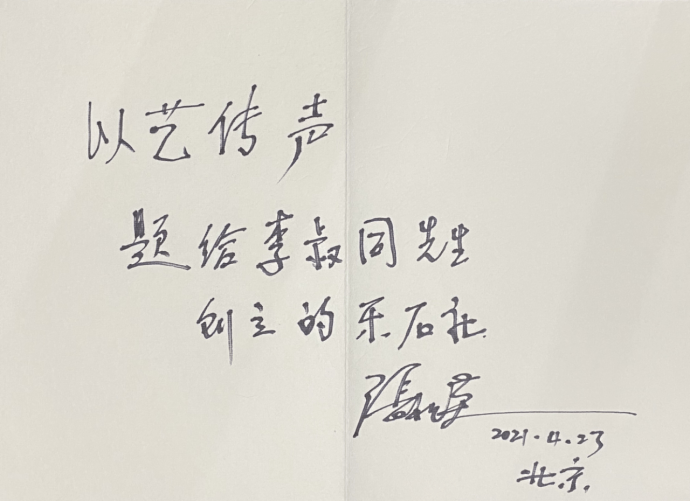 以艺传声
题给李叔同先生
创立的乐石社
2021.4.23
北京.